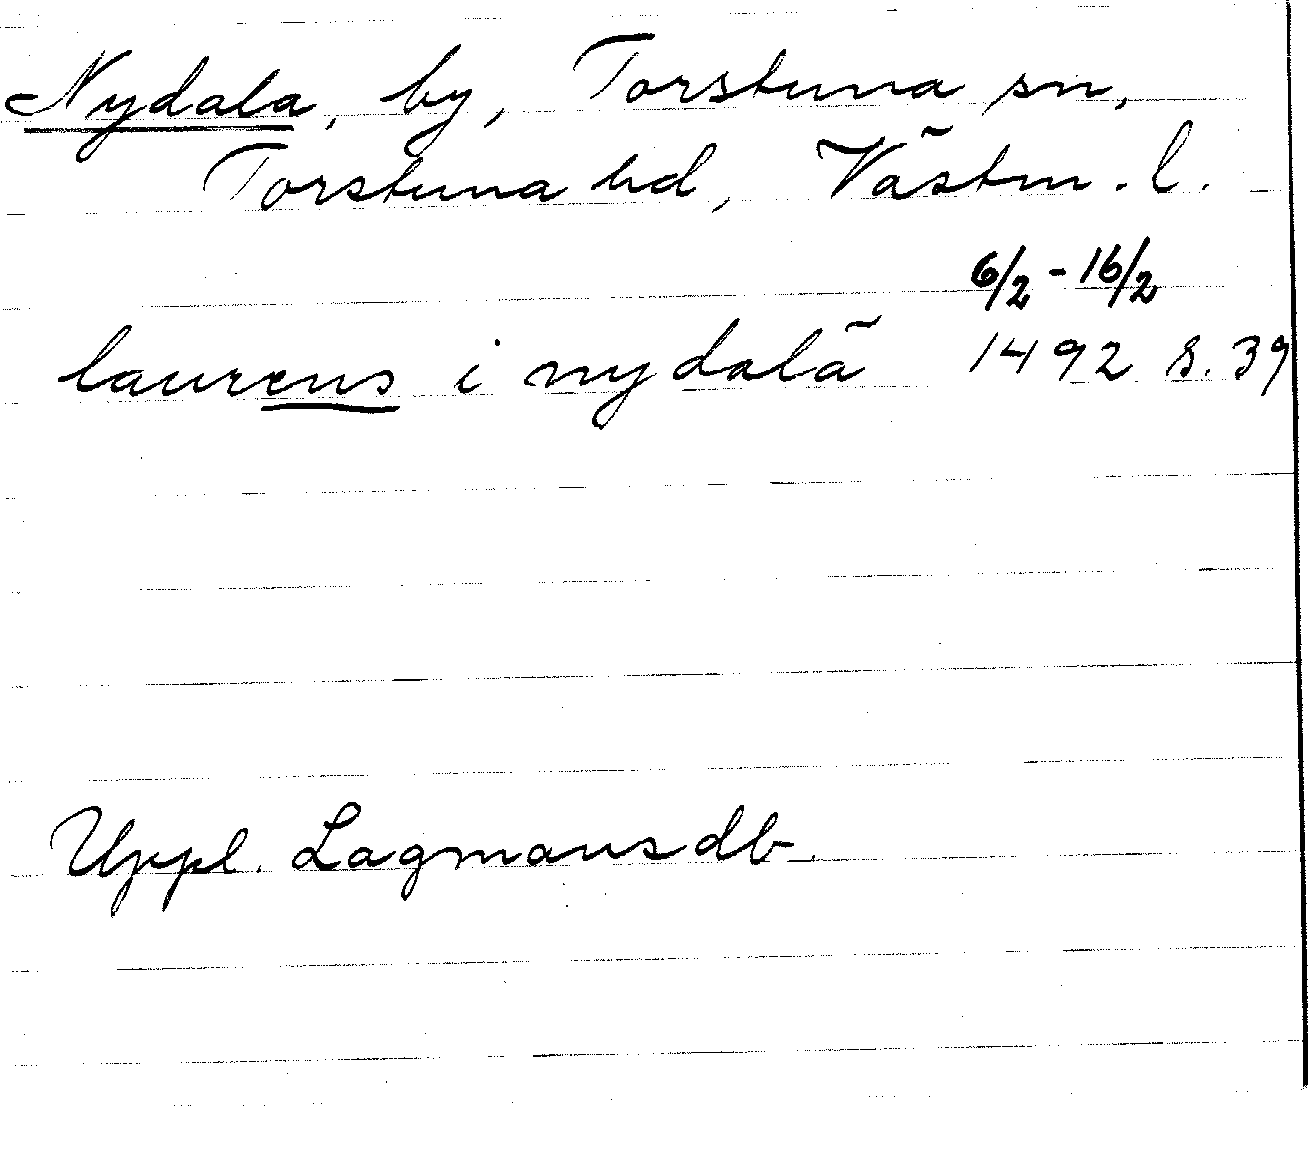 Nydala, by, Torstuna sn,
Torstuna hd, Västm. l.
6/2 - 16/2
laurens i nydalä 1492 s. 39
Uppl. Lagmansdb.